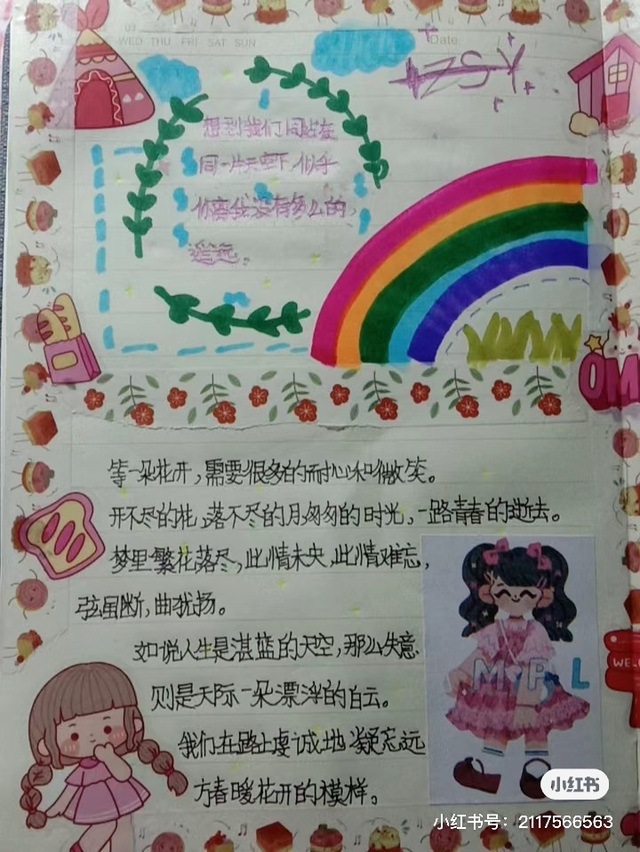 WED THU FRI SAT SUN
Date
ZSY
想到我们同站在
同一片天空下,似乎
你离我没有多么的
遥远。
OM
等一朵花开,需要很多的耐心和微笑。
开不尽的花,落不尽的月,匆匆的时光,一路青春的逝去。
梦里繁花落尽,此情未央,此情难忘,
弦虽断,曲犹扬。
如说人生是湛蓝的天空,那么失意
则是天际一朵漂浮的白云。
我们在路上虔诚地凝望远
方春暖花开的模样。
WEL
小红书
小红书号:2117566563